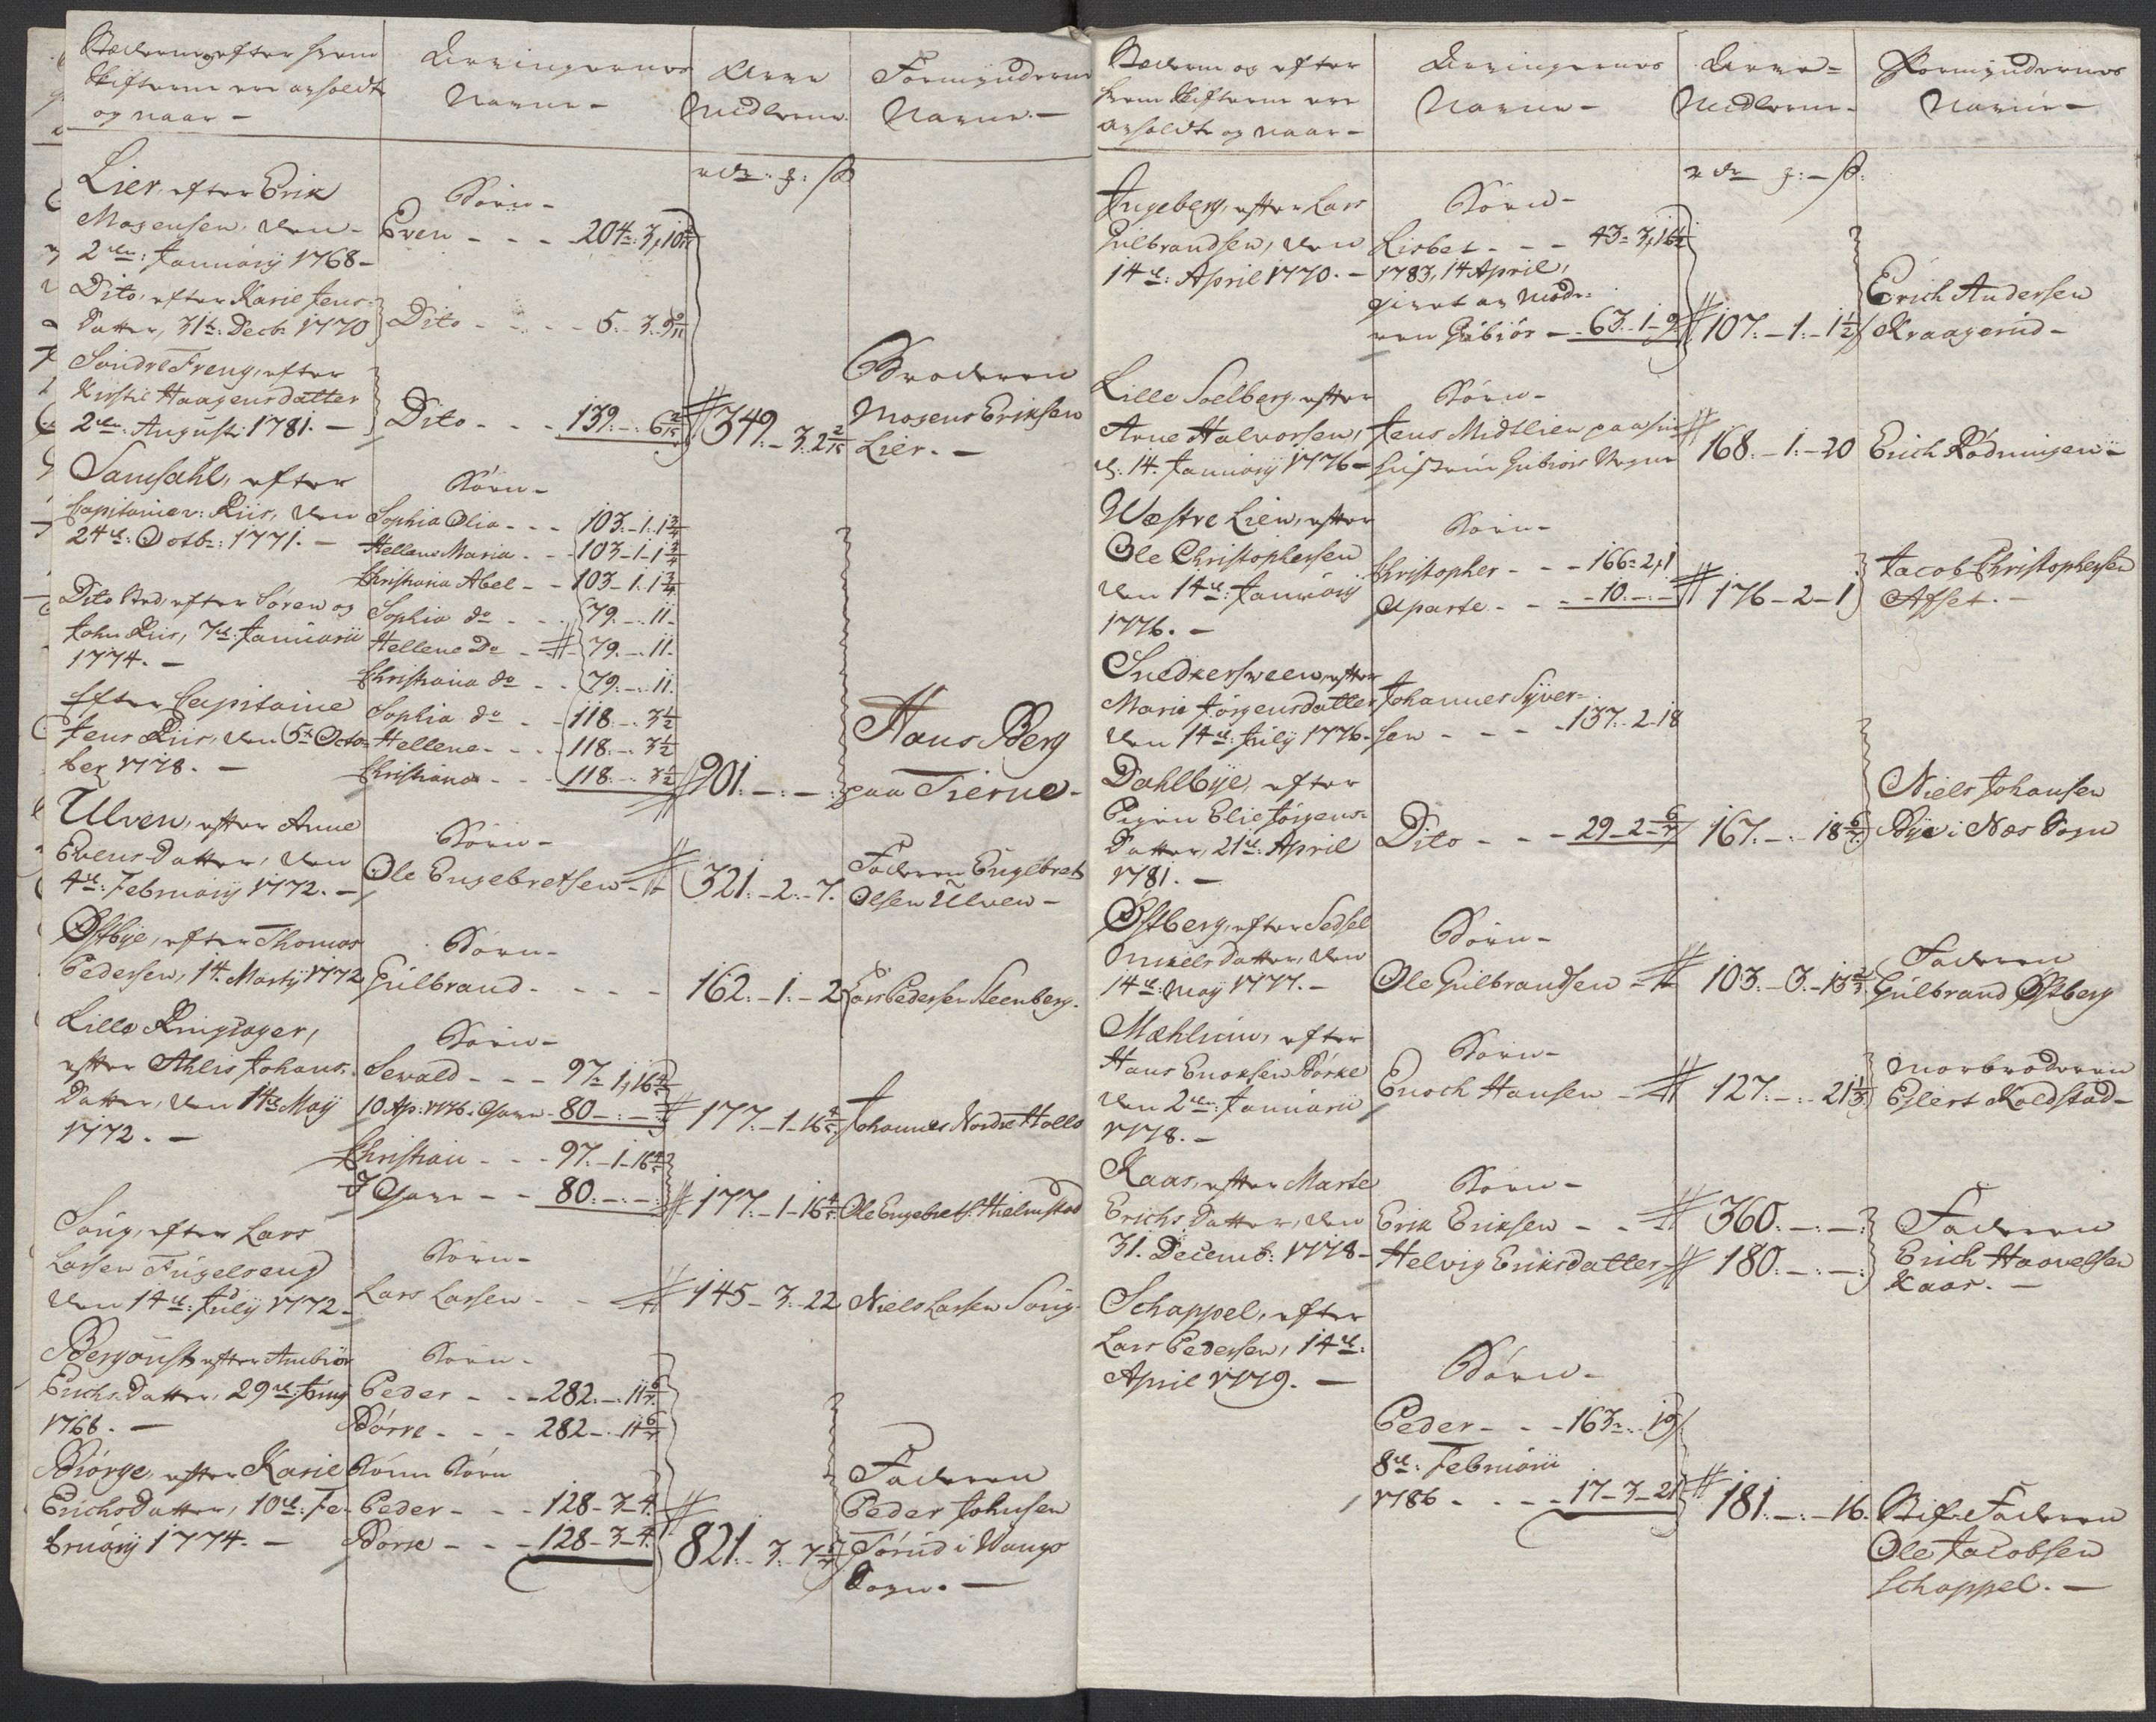 Stæderne og efter hvem
Skifterne ere avholdt
og naar -
Arvingernes
Navne -
Arve
Midlerne.
Formynderne
Navne. -
rdr: ß: /
Lier, efter Erik
Mogensen, den -
2den: Januarij 1768 -
Børn -
Even - - - 204: 3, 10
Dito, efter Karie Jens=
Datter, 31te: Decb: 1770
Dito - - - - 5. - 3. 9 9/11
Søndre Freng, efter
Kirstie Haagensdatter
2den: August: 1781. -
Dito - - - 139. - . 6 2/15
349. - 3. 2 2/15
Broderen
Mogens Eriksen
Lier. -
Samsahl, efter
Capitainer: Riis, den
24de: Octb: 1771. -
Børn -
Sophia Olia - - - 103. - 1. 1 3/4
Hellene Maria - - 103 - 1 - 1 3/4
Christiana Abel - - 103 - 1. 1 3/4
Dito Sted, efter Søren og
John Riis, 7de: Januarii
1774. -
Sophia do - - - 79. - . 11 -
Hellene Do - # 79. - . 11.
Christiana do - - 79. - . 11.
Efter Capitaine
Jens Riis, den 5te Octo=
ber 1778. -
Sophia do - - 118. - . 3 1/2
Hellene - - - - 118. - . 3 1/2
Christiana - - - 118. - . 3 1/2
901. - . - .
Hans Berg
paa Tierne -
Ulven, efter Anne
Evens Datter, den
4de: Februarij 1772. -
Børn -
Ole Engebretsen - #
321. - 2. - 7.
Faderen Englbret
Olsen Ulven -
Østbye, efter Thomas
Pedersen, 14. Martij 1772
Børn -
Gulbrand - - - -
162. - 1. - 2
Lars Pedersen Steenberg.
Lille Ringsager,
efter Ahlis Johans
Datter, den 14de May
1772. -
Børn -
Sewald - - - 97 - 1, 16 4/5
10 Ap: 1776 i Gave - 80 - : -
177. - 1 - 16 4/5
Johannes Nordre Halle
Christian - - - 97. - 1 - 16 4/5
I Gave - - 80. - . -
177. - 1 - 16 4/5
Ole Engebrets: Hielmstad
Soug, efter Lars
Larsen Fugelseng
den 14de: July 1772 -
Børn -
Lars Larsen - - #
145 - 3. - 22
Niels Larsen Soug.
Bergoust efter Anbiør
Erichs Datter, 29de: Junj
1766. -
Børn -
Peder - - - 282. - . 11 6/7
Børre - - - 282 - . 11 6/7
Biørge, efter Karie
Erichs Datter, 10de: Fe-
bruarij 1774. -
Sønne Børn
Peder - - - 128 - 3 - 4
Børre - - - 128 - 3 - 4
821. - 3. - 7 5/7
Faderen
Peder Johnsen
Torud i Wangs
Sogn. -
Stæderne og efter
hvem Skifterne ere
avholdte og naar -
Arvingernes
Navne -
Arve=
Midlerne -
Formyndernes
Navne -
rdr ß: - /:
Ingeberg, efter Lars
Gulbrandsen, den
14de: April 1770. -
Børn -
Lisbet - - - 43 - 3, 16 1/2
1783, 14 April,
givet av Mode=
ren Gubiør - 63 - 1 - 9
107. - 1: - 1 1/2
Erich Andersen
Kraagerud -
Lille Soelberg, efter
Arne Halvorsen,
d. 14. Januarij 1776 -
Børn -
Jens Midtlien paa sin
Hustrue Gubiørs Vegne
168. - 1: - 20
Erich Rødningen -
Westre Lien, efter
Ole Christophersen
den 14de: Januarij
1776. -
Børn -
Christopher - - - 166 - 2, 1
Aparte - - - 10. - . -
176 - 2 - 1
Jacob Christophersen
Afset. -
Snedkersveen, efter
Marie Jørgensdatter
den 14de: July 1776 -
Johannes Syver=
sen - - - - 137. - 2 - 18
Dahlbye, efter
Pigen Elie Jørgens=
Datter, 21de: April
1781. -
Dito - - - 29 - 2 - 6/7
167. - . 18 6/7
Niels Johansen
Bye i Næs Sogn
Østberg, efter Sedsel
Mikels Datter, den
14de: May 1777. -
Børn -
Ole Gulbrandsen - #
103. - 3. - 15 2/3
Faderen
Gulbrand Østberg
Mæhlum, efter
Hans Enoksen Børke
den 2den: Januarii
1778. -
Børn -
Enoch Hansen - #
127. - . 21 1/3
Morbroderen
Eylert Koldstad -
Kaas, efter Marte
Erichs Datter, den
31. Decemb: 1778 -
Børn -
Erik Eriksen - - #
360. - . -
Helvig Eriksdatter - #
180. - . -
Faderen
Erich Haavelsen
Kaas. -
Schappel, efter
Lars Pedersen, 14de:
April 1779. -
Børn -
Peder - - - 163 - . 19
8de: Februarii
1786 - - - - 17 - 3 - 21
181. - . - 16.
Stif-Faderen
Ole Jacobsen
Schappel. -